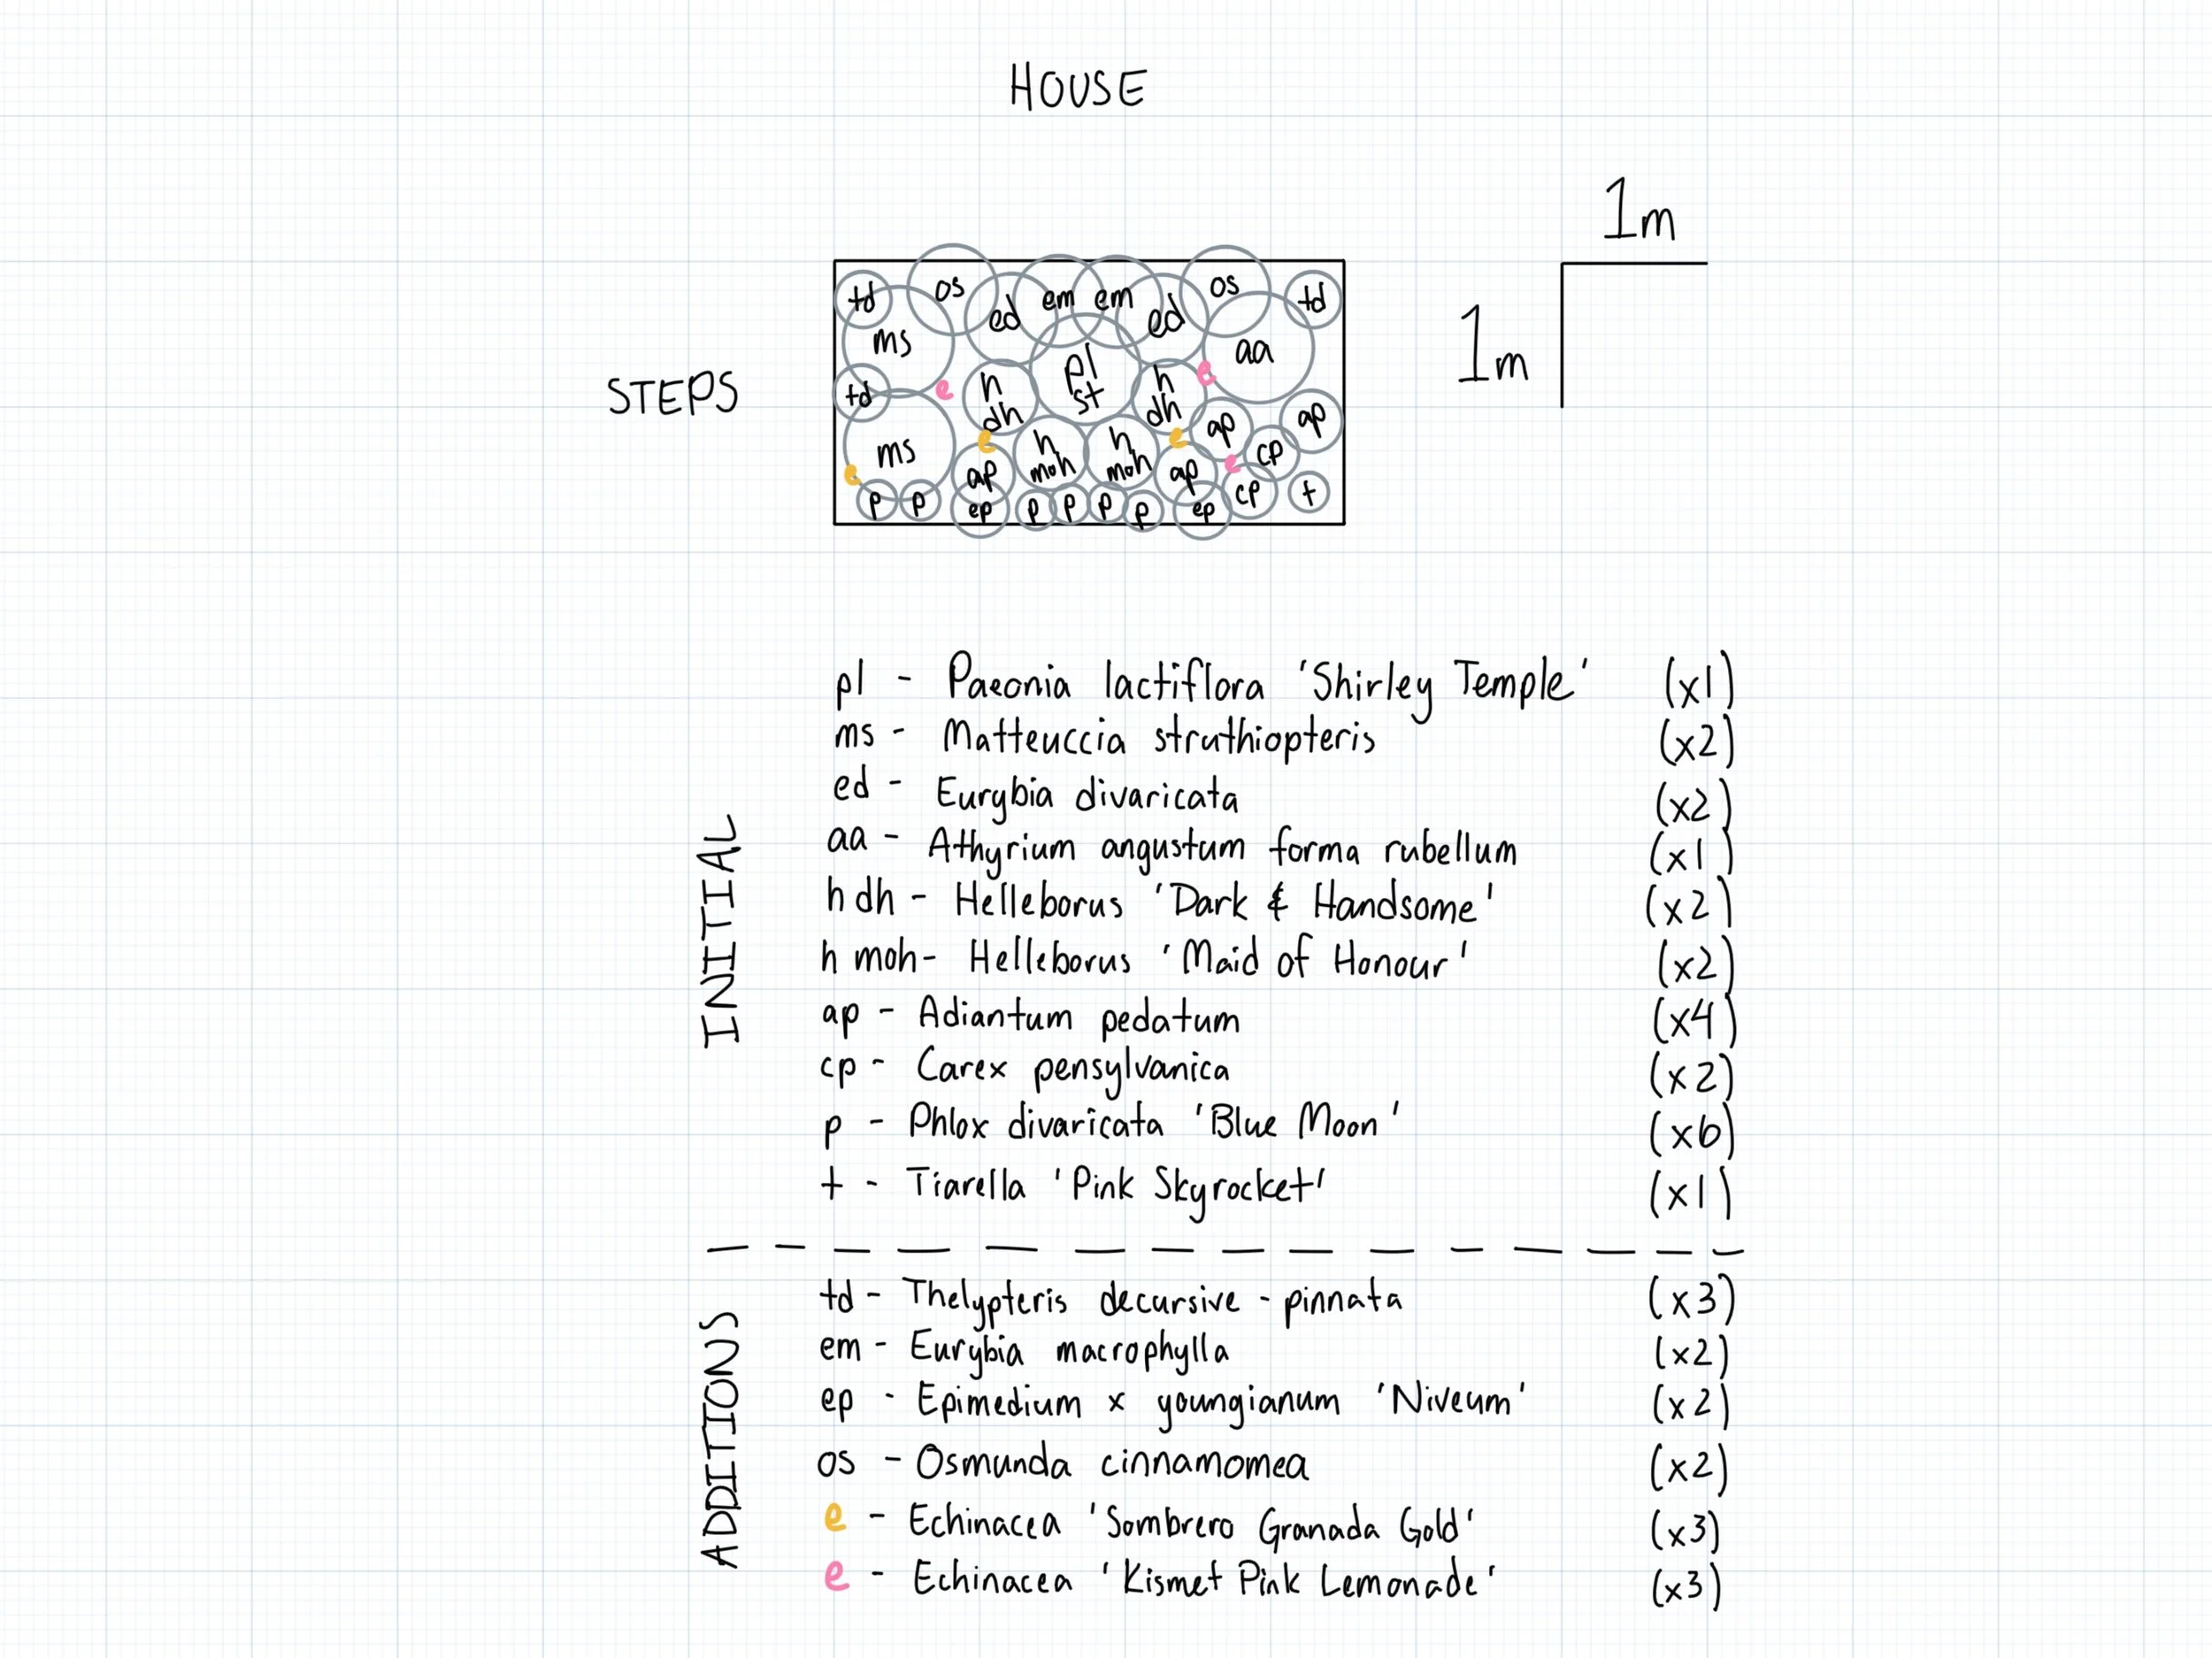 HOUSE
1m
1m
STEPS
td os ed em em ed os td
ms pl st aa
td e h dh h dh e
ms e h moh h moh e ap ap
e ap ap e cp
p p ep p p p p ep cp t
INITIAL
pl - Paeonia lactiflora 'Shirley Temple' (x1)
ms - Matteuccia struthiopteris (x2)
ed - Eurybia divaricata (x2)
aa - Athyrium angustum forma rubellum (x1)
h dh - Helleborus 'Dark & Handsome' (x2)
h moh - Helleborus 'Maid of Honour' (x2)
ap - Adiantum pedatum (x4)
cp - Carex pensylvanica (x2)
p - Phlox divaricata 'Blue Moon' (x6)
t - Tiarella 'Pink Skyrocket' (x1)
ADDITIONS
td - Thelypteris decursive - pinnata (x3)
em - Eurybia macrophylla (x2)
ep - Epimedium x youngianum 'Niveum' (x2)
os - Osmunda cinnamomea (x2)
e - Echinacea 'Sombrero Granada Gold' (x3)
e - Echinacea 'Kismet Pink Lemonade' (x3)